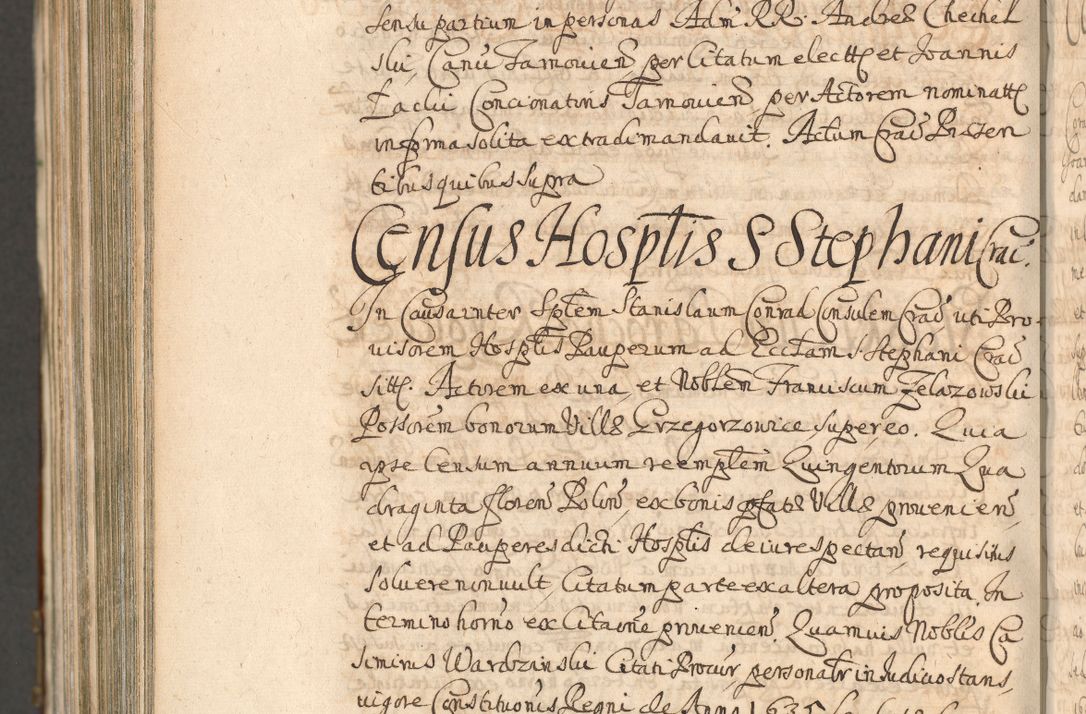 sensu partium in personas Adm RR. Andreæ Chechel
ski, Canci Tarnovien, per Citatum electt, et Joannis
Lachi Concionatoris Tarnovien, per Actorem nominatt,
in forma solita extradi mandavit. Actum Crac Præsen
tibus quibus supra
Census Hosptlis S Stephani Crac.
In Causa inter Spttem Stanislaum Conrad Consulem Crac, uti Pro
visorem Hosptlis Pauperum ad Ecctam S. Stephani Crac
sitt. Actorem ex una, et Noblem Franciscum Zelazowski
Possorem bonorum Villæ Grzegorzowice, super eo. Quia
ipse Censum annuum reemptlem Quingentorum Qua
draginta floren Polon, ex bonis pfatæ Villæ provenien,
et ad Pauperes dicti Hosptlis de iure spectan requisitus
solvere non vult Citatum parte ex altera proposita. In
termino horno ex Citaone provenien. Quamvis Noblis Ca
simirus Wardzinski Citati Procur personalr in Iudicio stans,
vigore Constitutionis Regni de Anno 1635